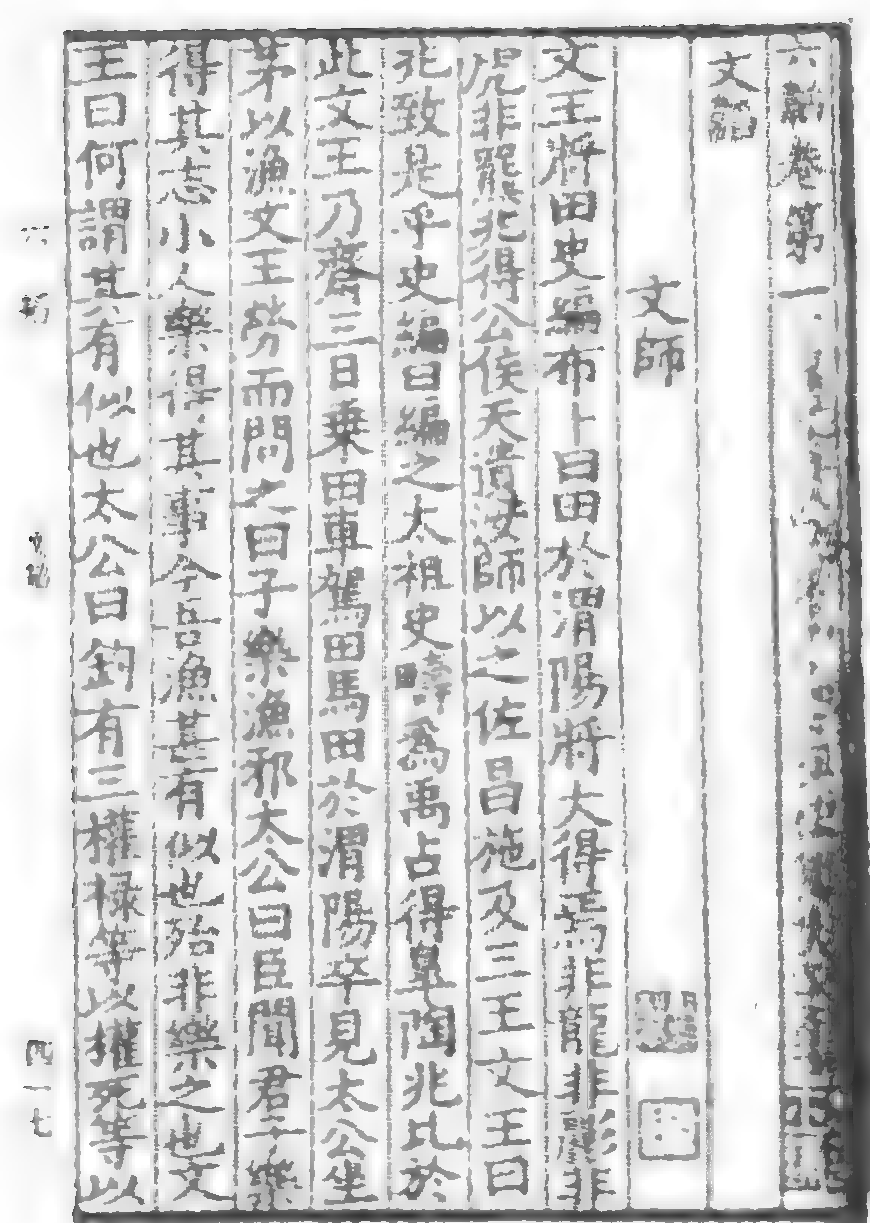 六韜卷第一
文韜
文師
文王將田史編布卜曰田於渭陽將大得焉非龍非彲非
虎非羆兆得公侯天遺汝師以之佐昌施及三王文王曰
兆致是乎史編曰編之太祖史疇為禹占得皐陶兆比於
此文王乃齋三日乗田車駕田馬田於渭陽卒見太公坐
茅以漁文王勞而問之曰子樂漁邪太公曰臣聞君子樂
得其志小人樂得其事今吾漁甚有似也殆非樂之也文
王曰何謂其有似也太公曰釣有三權祿等以權死等以
六韜
四一七